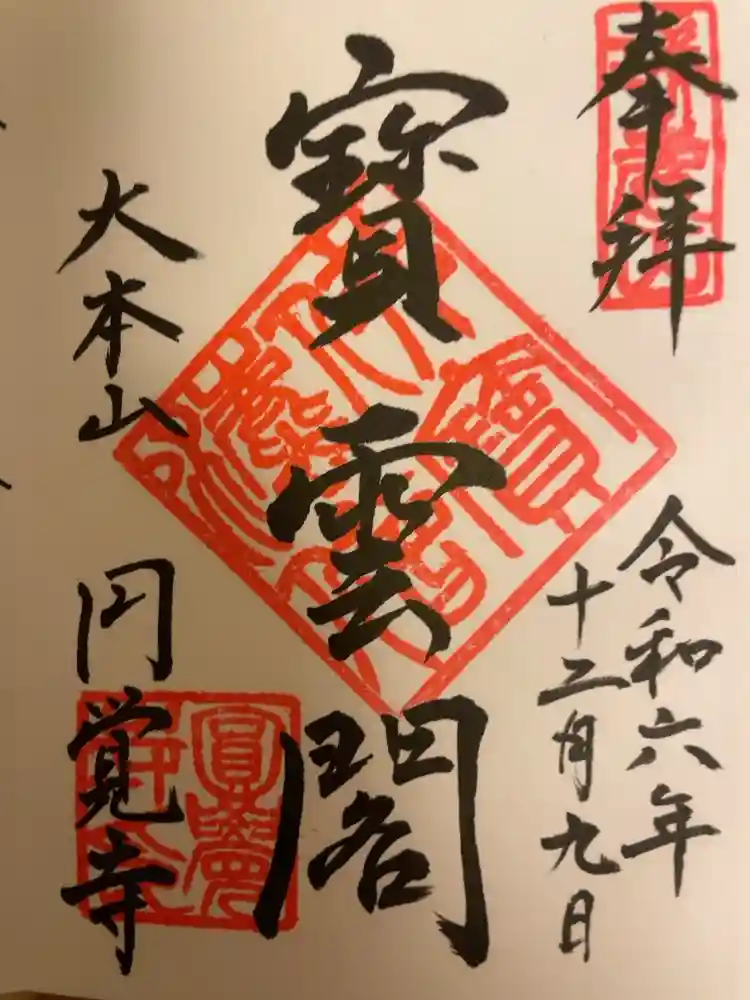 奉拝
令和六年
十二月九日
寳雲閣
大本山
円覚寺